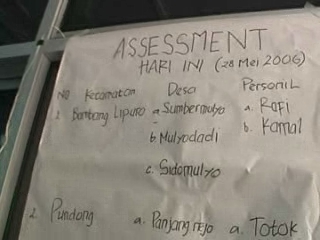 ASSESSMENT
HARI INI (28 MEI 2006)
NO Kecamatan Desa PersoniL
1. Bambang Lipuro a. Sumbermulyo a. Rafi
b. Mulyodadi b. Kamal
c. Sidomulyo
2. Pundong a. Panjangrejo a. Totok